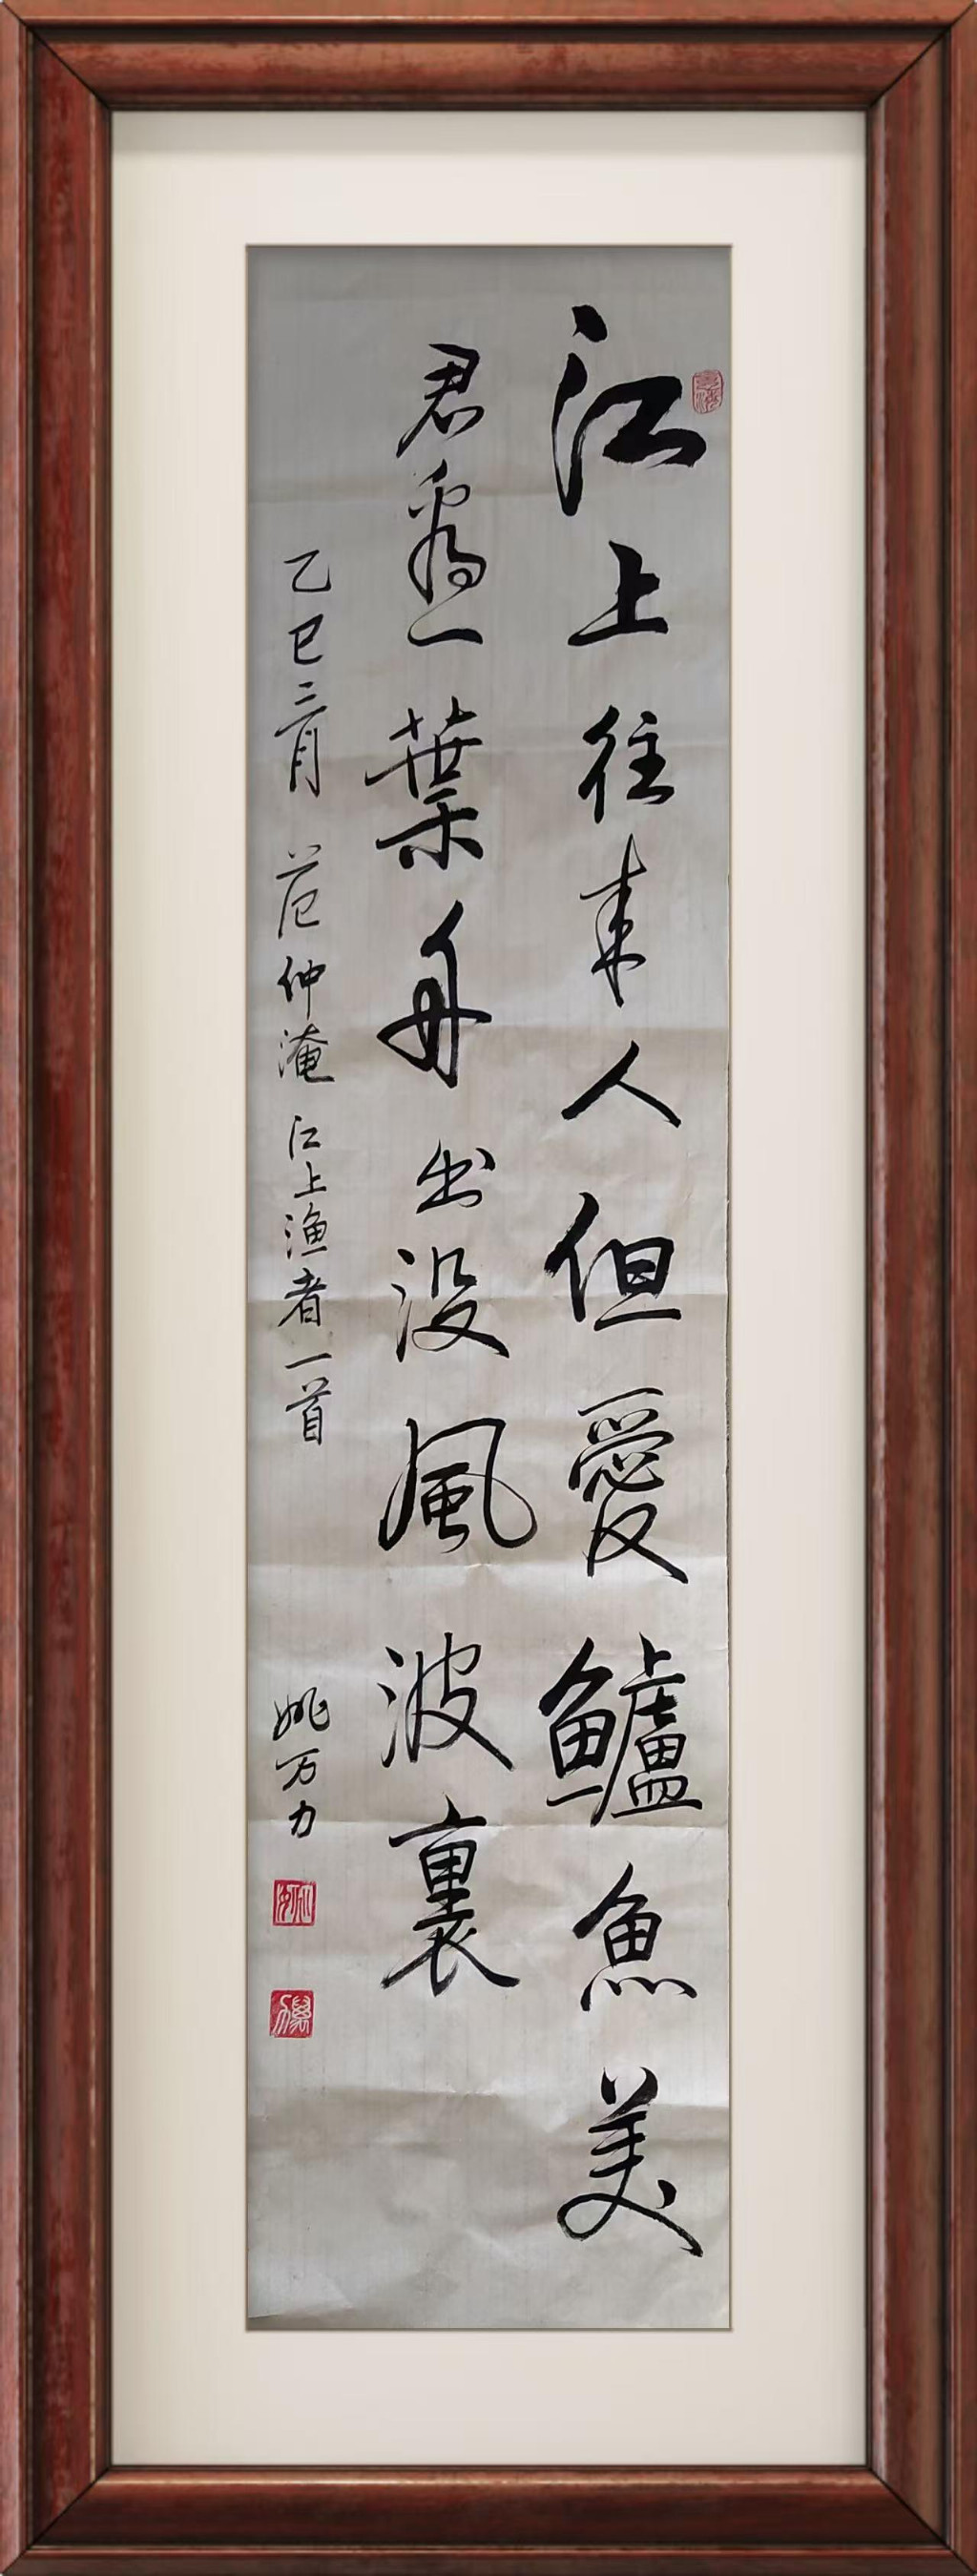 江上往来人但愛鱸魚美
君看一葉舟出没風波裏
乙巳三月 范仲淹 江上渔者一首 姚万力
姚